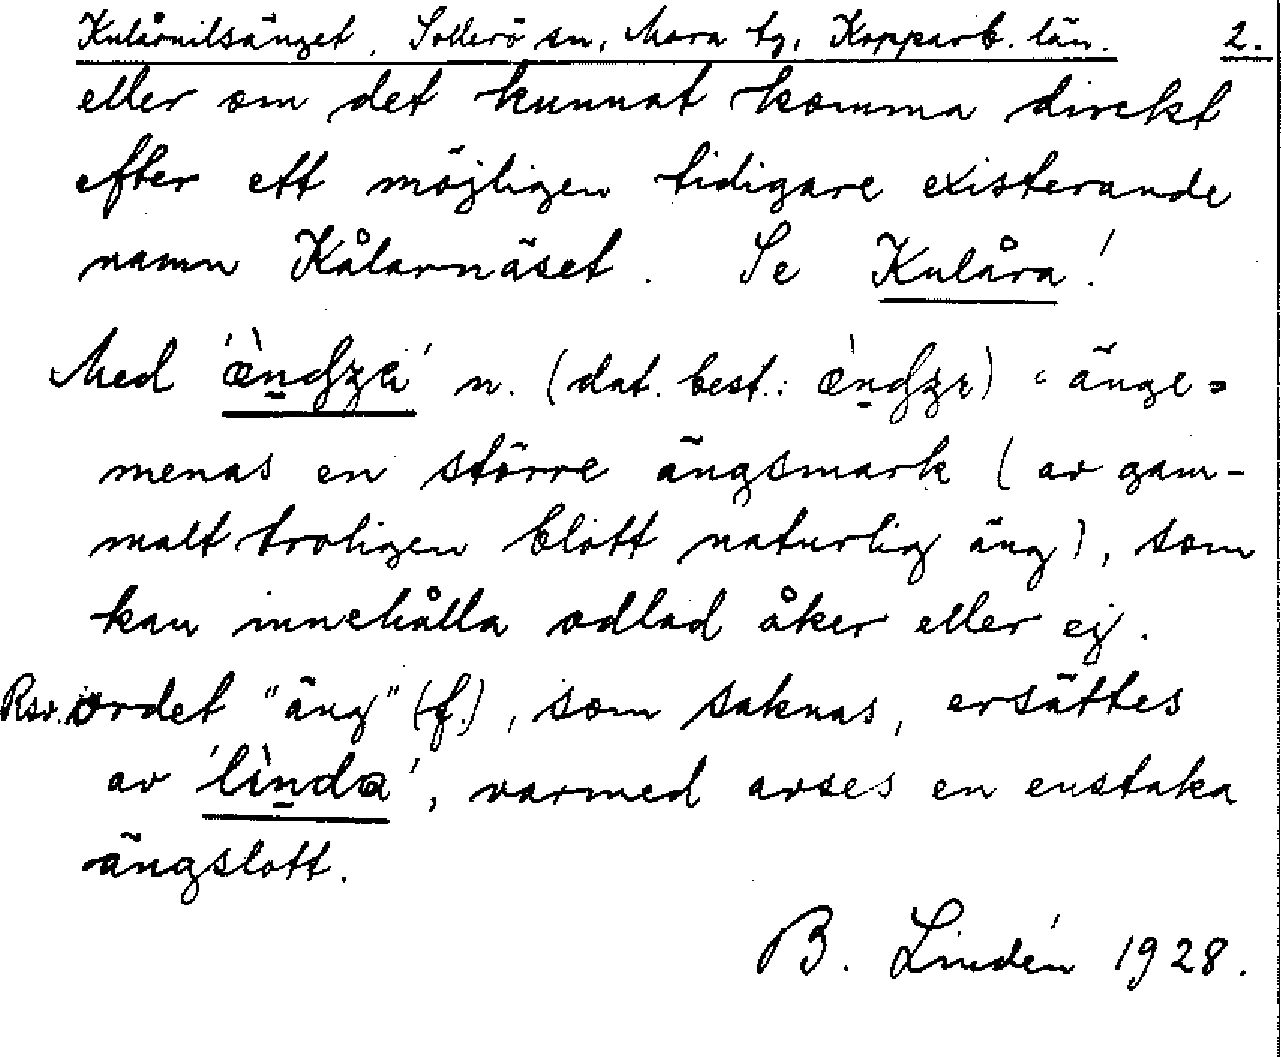 Kulåonilsänget, Sollerö sn, Mora tg, Kopparb. län. 2.
eller om det kunnat komma direkt
efter ett möjligen tidigare existerande
namn Kålarnäset. Se Kulåra!
Med 'æ̀n̠dʒzä' n. (dat. best.: æ̀n̠dʒzɩ) "änge"
menas en större ängsmark (av gam-
malt troligen blott naturlig äng), som
kan innehålla odlad åker eller ej.
Rsv. ordet "äng" (f.), som saknas, ersättes
av 'lìn̠da', varmed avses en enstaka
ängslott.
B. Lindén 1928.